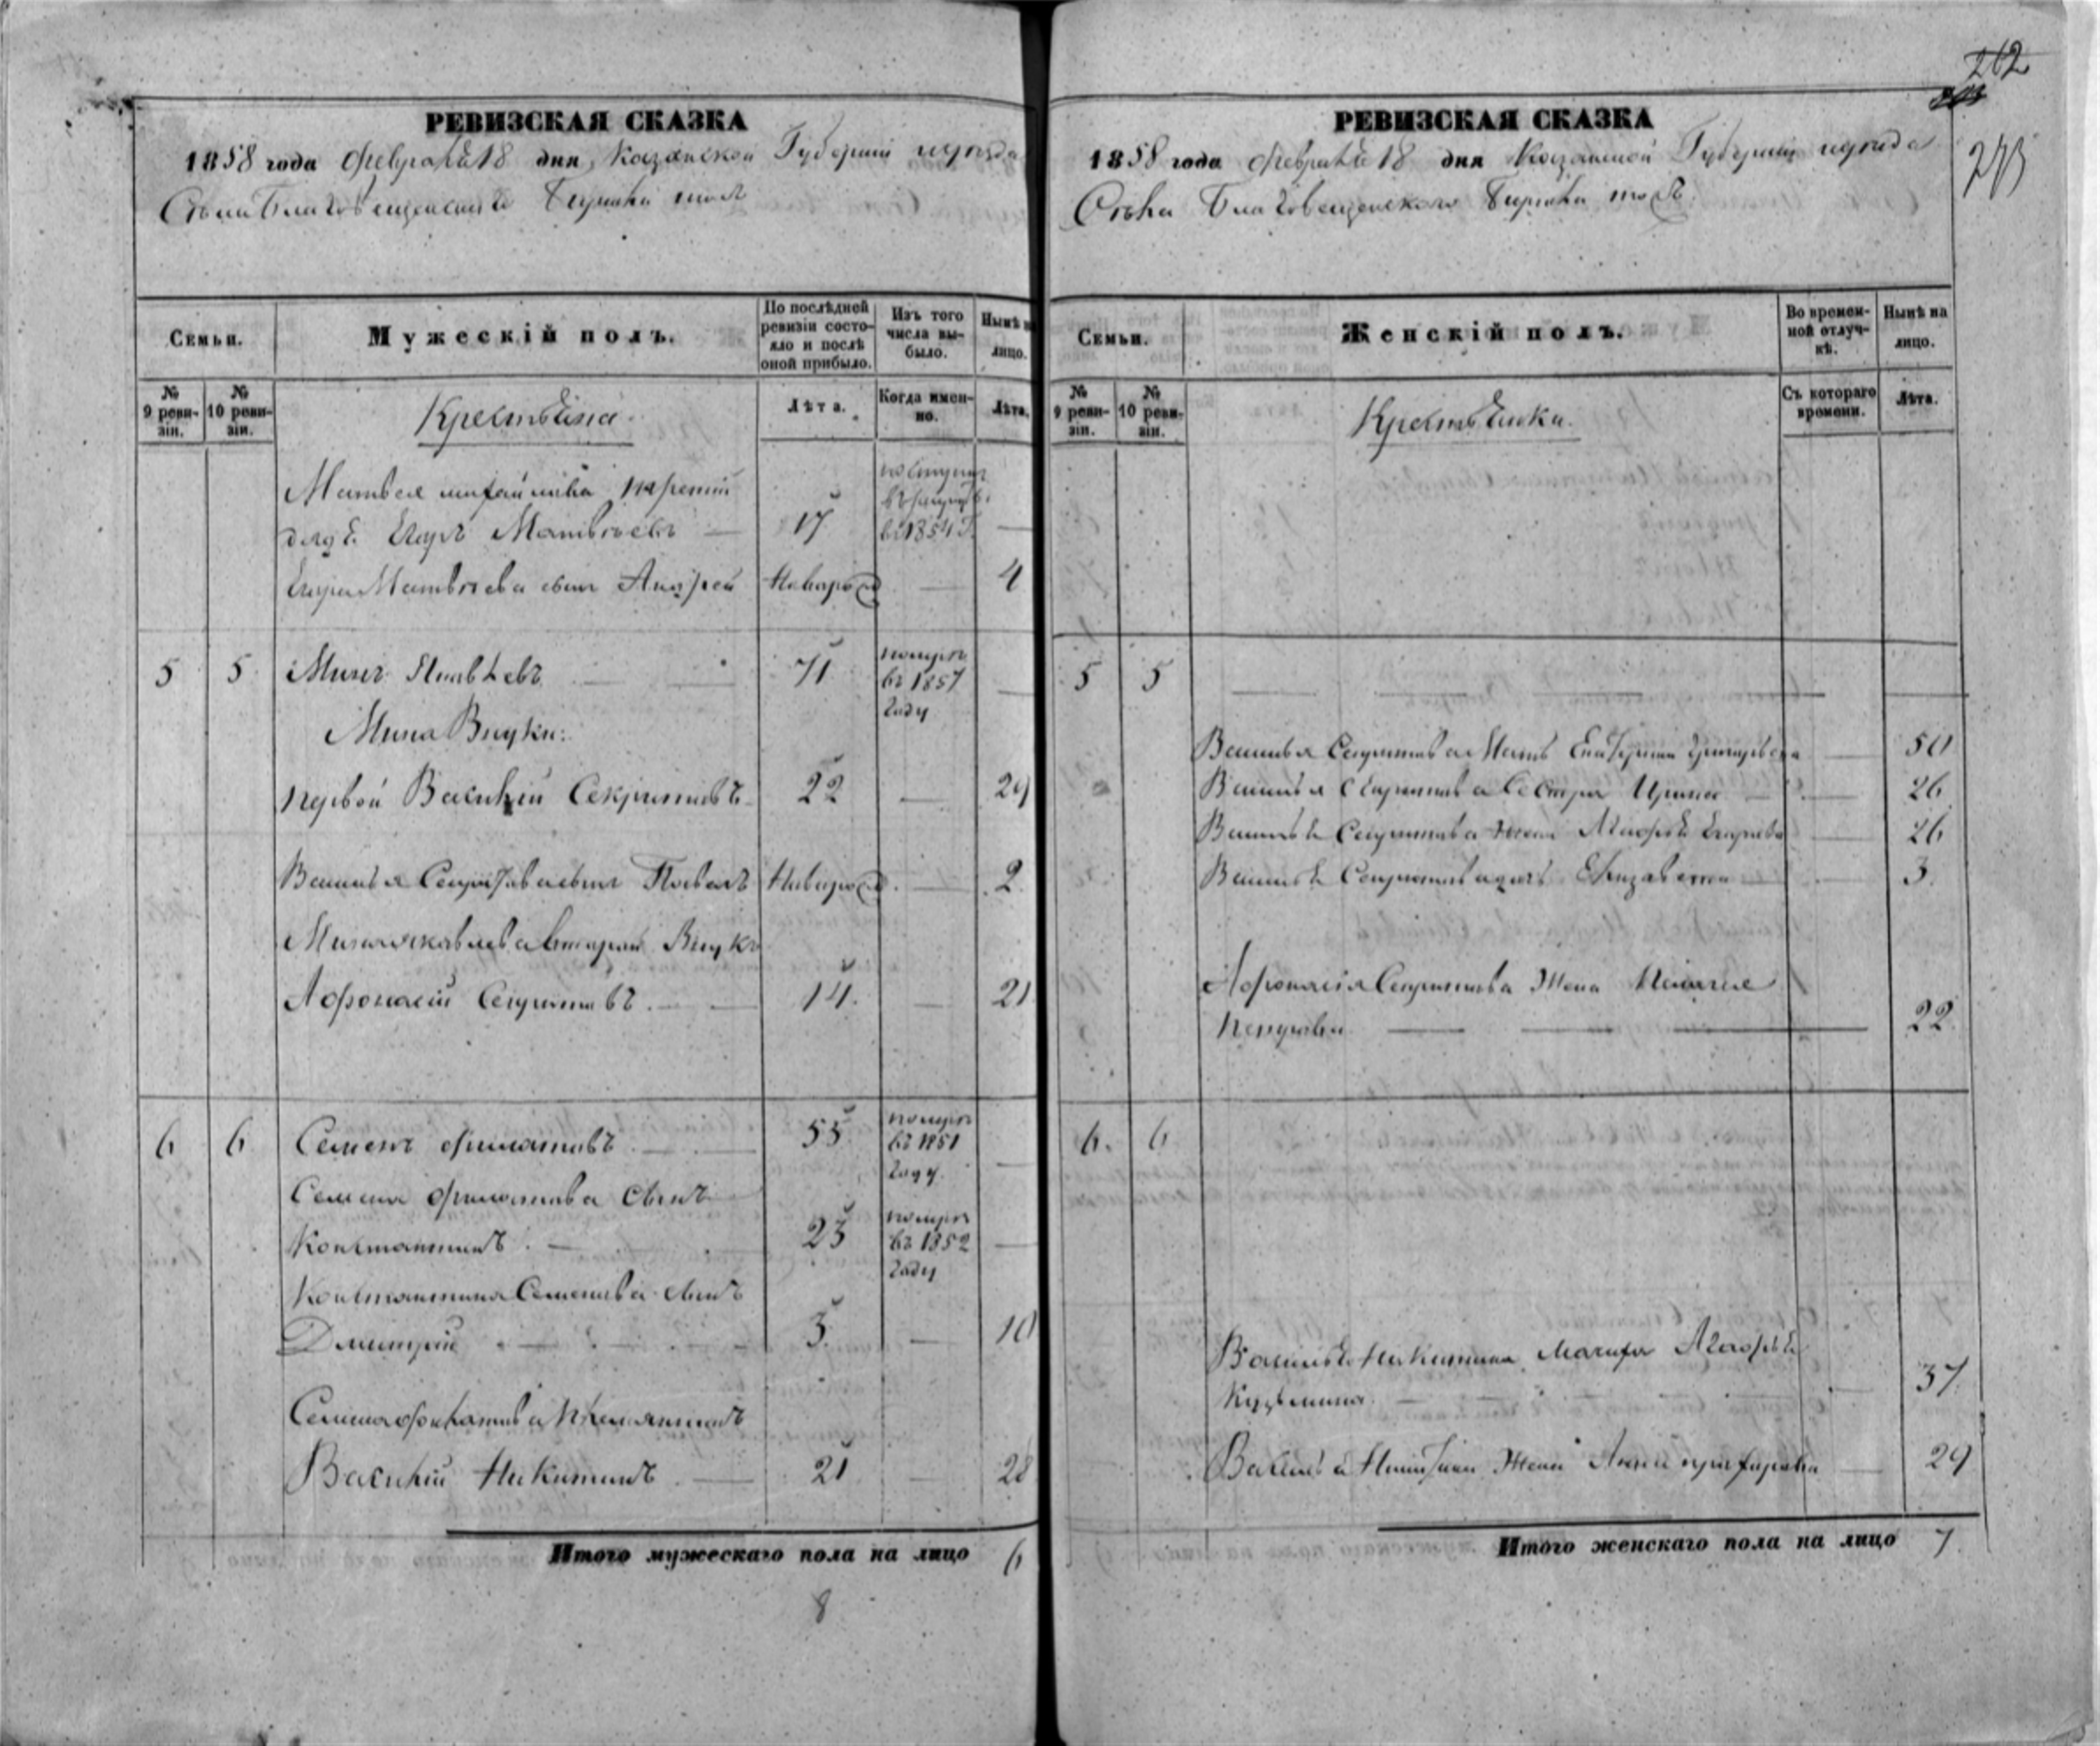 262
273
РЕВИЗСКАЯ СКАЗКА
1858 года Февраля 18 дня, Казанской Губернии и уезда
Села Благовещенского Бурнаки тожъ
Семьи.
Мужескій полъ.
По послѣдней ревизіи состояло и послѣ оной прибыло.
Изъ того числа выбыло.
Нынѣ на лицо.
№ 9 ревизіи.
№ 10 ревизіи.
Крестьяна
Лѣта.
Когда именно.
Лѣта.
Матвея
дядя Егоръ Матвѣевъ 17 въ 1854 г.
Егора Матвѣева сынъ Андрей Новорож 4
5 5 Минъ Яковлевъ 71 померъ въ 1857 году
Мина Внуки:
первой Василій Секритовъ 22 29
Василья сынъ Новорож 2
Мина Яковлева вторый Внукъ
Афонасій 14. 21
6 6 Семенъ Филатовъ 55 померъ въ 1851 году
Семена Филатова сынъ
Константинъ 23 померъ въ 1852 году
Константина Семенова сынъ
Дмитрій 3. 10
Семена Филатова племянникъ
Василій Никитинъ 21 28
Итого мужескаго пола на лицо 6
8
РЕВИЗСКАЯ СКАЗКА
1858 года Февраля 18 дня Казанской Губернии уезда
Села Благовещенского Бурнаки тожъ
Семьи.
Женскій полъ.
Во временной отлучкѣ.
Нынѣ на лицо.
№ 9 ревизіи.
№ 10 ревизіи.
Крестьянки.
Съ котораго времени.
Лѣта.
5 5
Василья Мать Екатерина Григорьева 50
Василья Сестра Ирина 26
Василья жена Агафья Егорова 26
Василья дочь Елизавета 3.
Афонасія Жена Пелагея
Петрова 22
6. 6
Василья Никитина Мачиха Агафья
Кузьмина 37.
Василья Никитина Жена 29
Итого женскаго пола на лицо 7